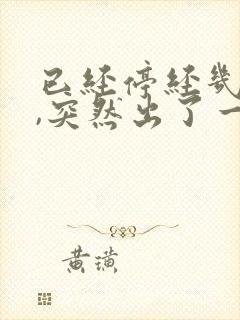 已经停经几
,突然出了一
黄璜